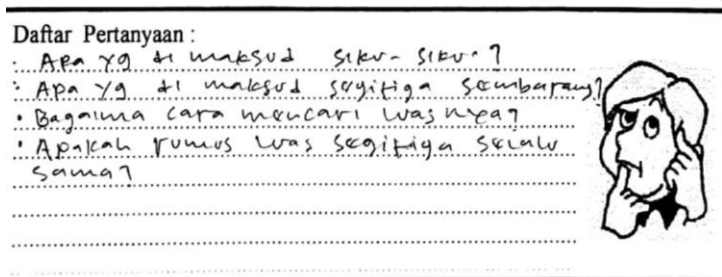 Daftar Pertanyaan :
· Apa yg di maksud siku-siku?
· Apa yg di maksud segitiga sembarang?
· Bagaima cara mencari luasnya?
· Apakah rumus luas segitiga selalu
sama?